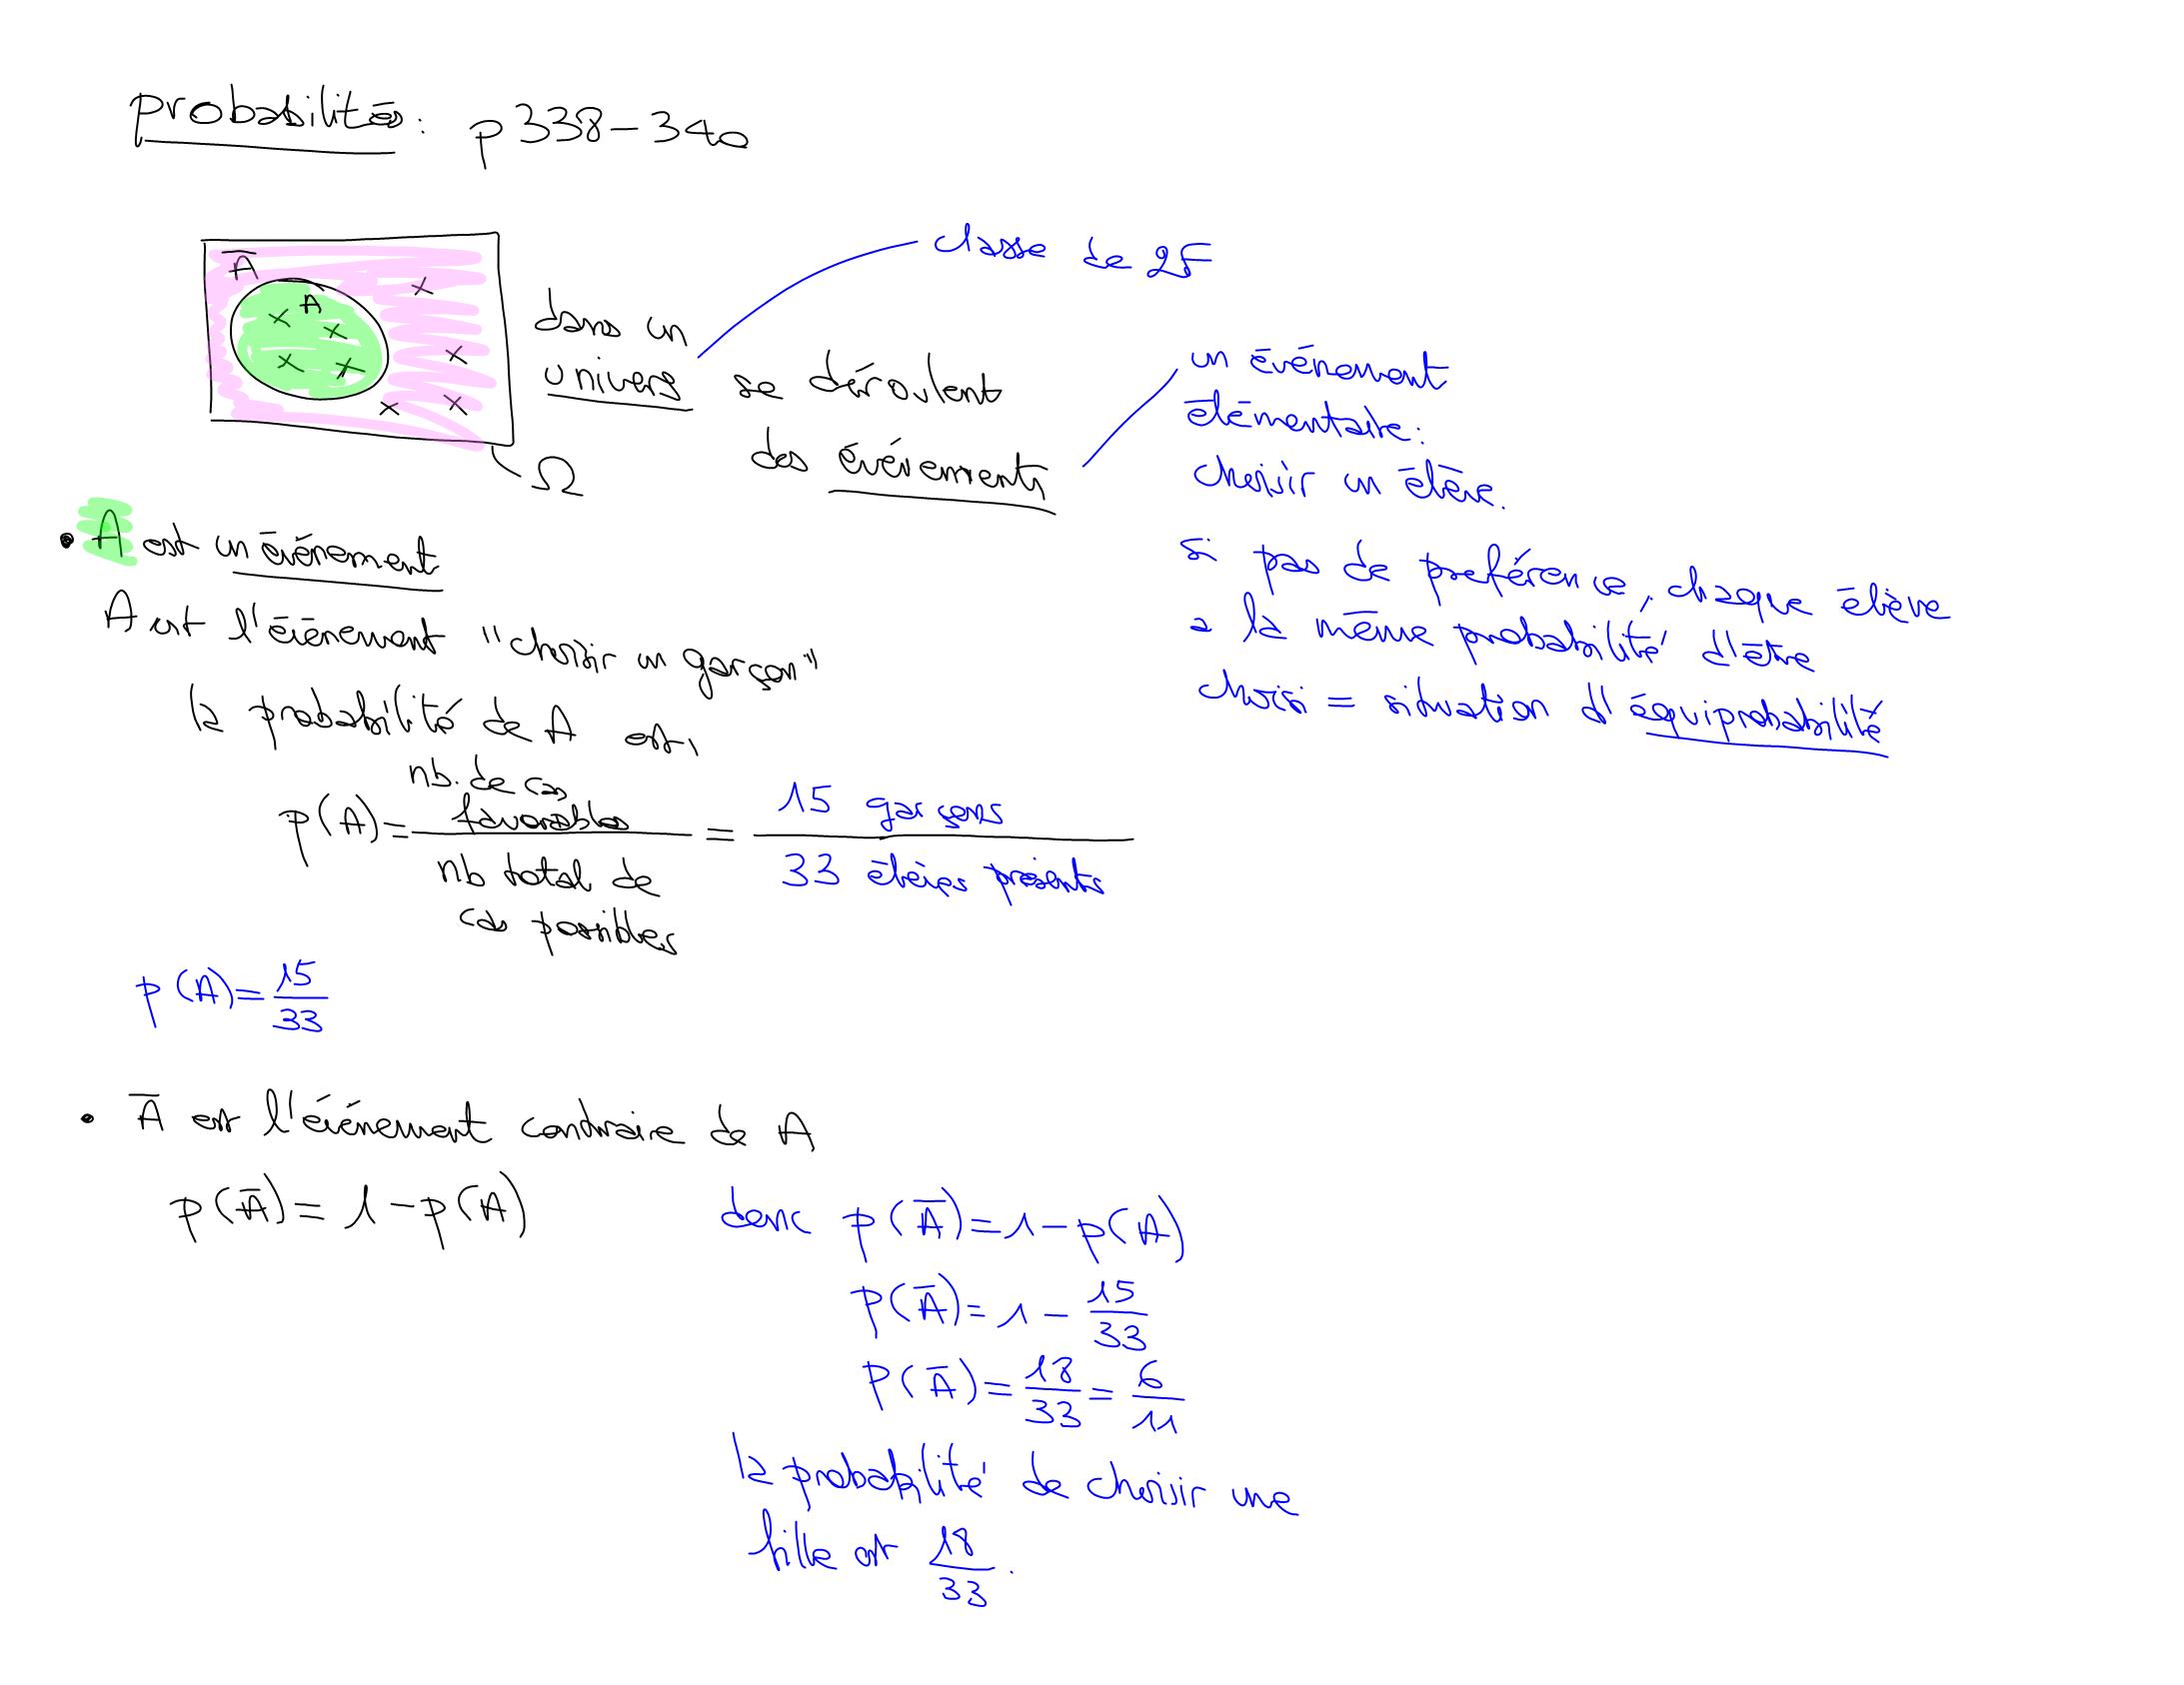 probabilités : p338-340
Ā
A
Ω
dans un
univers se déroulent
des événements
classe de 2F
un événement
élémentaire :
choisir un élève.
si pas de preférence, chaque élève
a la même probabilité d'être
choisi = situation d'équiprobabilité
• A est un événement
A est l'événement "choisir un garçon"
la probabilité de A est,
nb. de cas
p(A) = favorables / nb total de cas possibles = 15 garçons / 33 élèves présents
p(A) = 15/33
• Ā est l'événement contraire de A
p(Ā) = 1 - p(A)
donc p(Ā) = 1 - p(A)
p(Ā) = 1 - 15/33
p(Ā) = 18/33 = 6/11
la probabilité de choisir une
fille est 18/33.